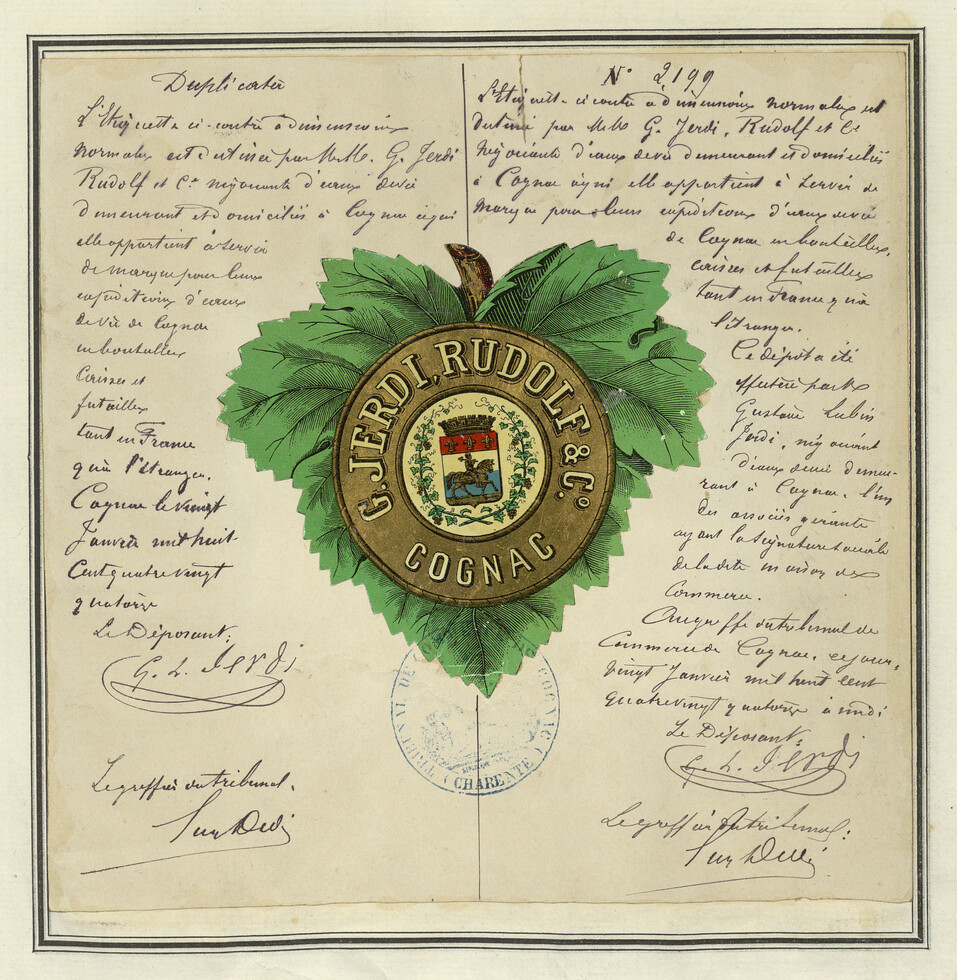 Duplicata
L'Etiquette ci-contre à dimensions
normales est destinée par M.M. G. Jerdi
Rudolf et Cie négociants d'eaux de vie
demeurant et domiciliés à Cognac à qui
elle appartient à servir
de marque pour leurs
expéditions d'eaux
de vie de Cognac
en bouteilles
Caisses et
futailles
tant en France
qu'à l'étranger.
Cognac le vingt
Janvier mil huit
Cent quatre vingt
quatorze
Le Déposant:
G. L. Jerdi
Le greffier du tribunal.
N° 2199
L'Etiquette ci contre à dimensions normales est
destiné par M.M. G. Jerdi, Rudolf et Cie
Négociants d'eaux de vie demeurant et domiciliés
à Cognac à qui elle appartient à servir de
marque pour leurs expéditions d'eaux de vie
de Cognac en bouteilles,
caisses et futailles
tant en France qu'à
l'étranger.
Ce dépôt a été
effectué par M.
Gustave Lubin
Jerdi, négociant
d'eaux de vie demeu-
rant à Cognac, l'un
des associés gérants
ayant la signature sociale
de la dite maison de
Commerce.
Au greffe du tribunal de
Commerce de Cognac, ce jour,
vingt Janvier mil huit cent
quatre vingt quatorze à midi
Le Déposant:
G. L. Jerdi
Le greffier du tribunal:
G. JERDI, RUDOLF & Co
COGNAC
TRIBUNAL DE COGNAC
(CHARENTE)